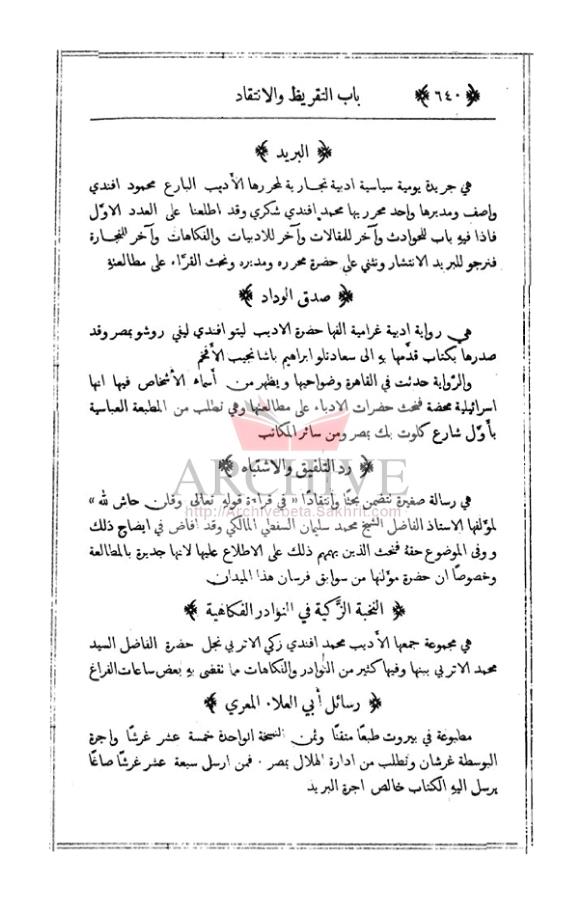 ﴿ ٦٤٠ ﴾ باب التقريظ والانتقاد
﴿ البريد ﴾
هي جريدة يومية سياسية ادبية تجارية لمحررها الأديب البارع محمود افندي
واصف ومديرها واحد محرريها محمد افندي شكري وقد اطلعنا على العدد الاوّل
فاذا فيهِ باب للحوادث وآخر للمقالات وآخر للادبيات والفكاهات وآخر للتجارة
فنرجو للبريد الانتشار ونثني على حضرة محرره ومديره ونحث القرَّاء على مطالعتهِ
﴿ صدق الوداد ﴾
هي رواية ادبية غرامية الفها حضرة الاديب ليتو افندي ليني روشو بمصر وقد
صدرها بكتاب قدَّمها بهِ الى سعادتلو ابراهيم باشا نجيب الأفخم
والرّواية حدثت في القاهرة وضواحيها ويظهر من أسماء الأشخاص فيها انها
اسرائيلية محضة فنحث حضرات الادباء على مطالعتها وهي تطلب من المطبعة العباسية
بأوّل شارع كلوت بك بمصر ومن سائر المكاتب
﴿ رد التلفيق والاشتباه ﴾
ARCHIVE
http://Archivebeta.Sakhrit.com
هي رسالة صغيرة تتضمن بحثًا وانتقادًا « في قراءة قولهِ تعالى وقلن حاش لله »
لمؤلفها الاستاذ الفاضل الشيخ محمد سليمان السفطي المالكي وقد افاض في ايضاح ذلك
ووفى الموضوع حقهُ فنحث الذين يهمهم ذلك على الاطلاع عليها لانها جديرة بالمطالعة
وخصوصًا ان حضرة مؤلفها من سوابق فرسان هذا الميدان
﴿ النخبة الزَّكية في النوادر الفكاهية ﴾
هي مجموعة جمعها الأديب محمد افندي زكي الاتربي نجل حضرة الفاضل السيد
محمد الاتربي ببنها وفيها كثير من النوادر والفكاهات مما نقضي بهِ بعض ساعات الفراغ
﴿ رسائل أبي العلاء المعري ﴾
مطبوعة في بيروت طبعًا متقنًا وثمن النسخة الواحدة خمسة عشر غرشًا واجرة
البوسطة غرشان وتطلب من ادارة الهلال بمصر ٠ فمن ارسل سبعة عشر غرشًا صاغًا
يرسل اليهِ الكتاب خالص اجرة البريد